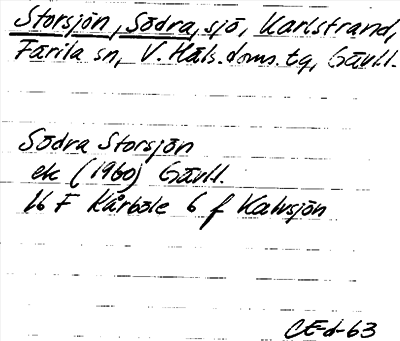 Storsjön, Södra, sjö, Karlstrand,
Färila sn, V. Häls. doms. tg, Gävll.
Södra Storsjön
ek (1960) Gävll.
16 F Kårböle 6 f Kalvsjön
CE-d-63